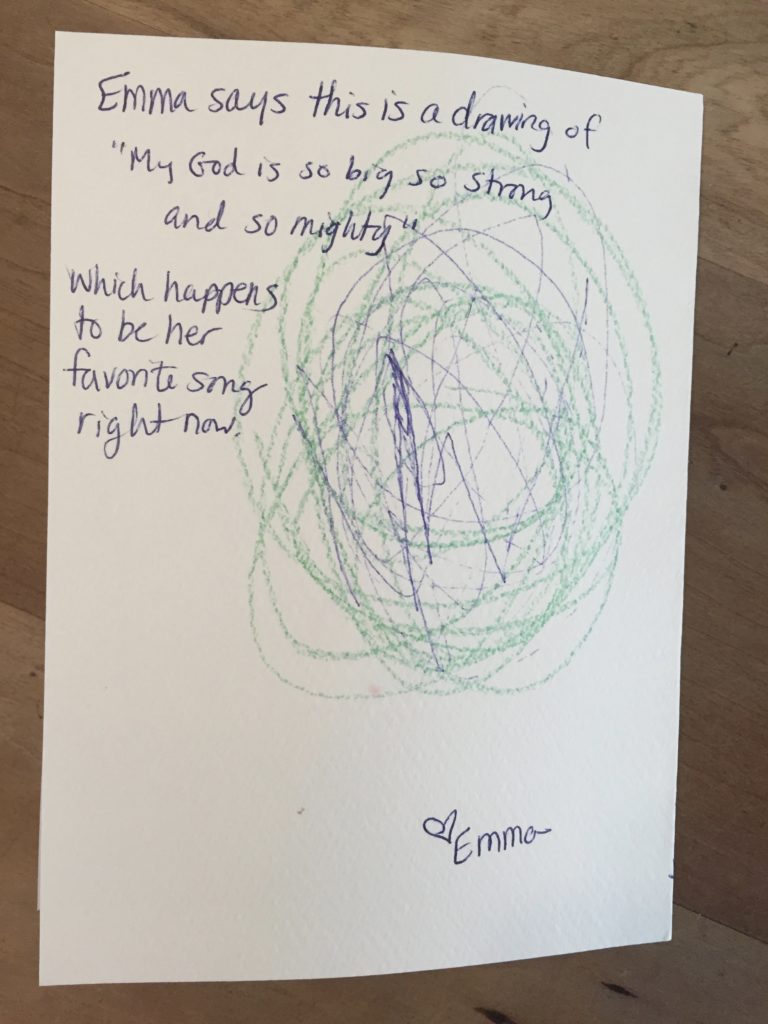 Emma says this is a drawing of
"My God is so big so strong
and so mighty"
which happens
to be her
favorite song
right now.
♡Emma